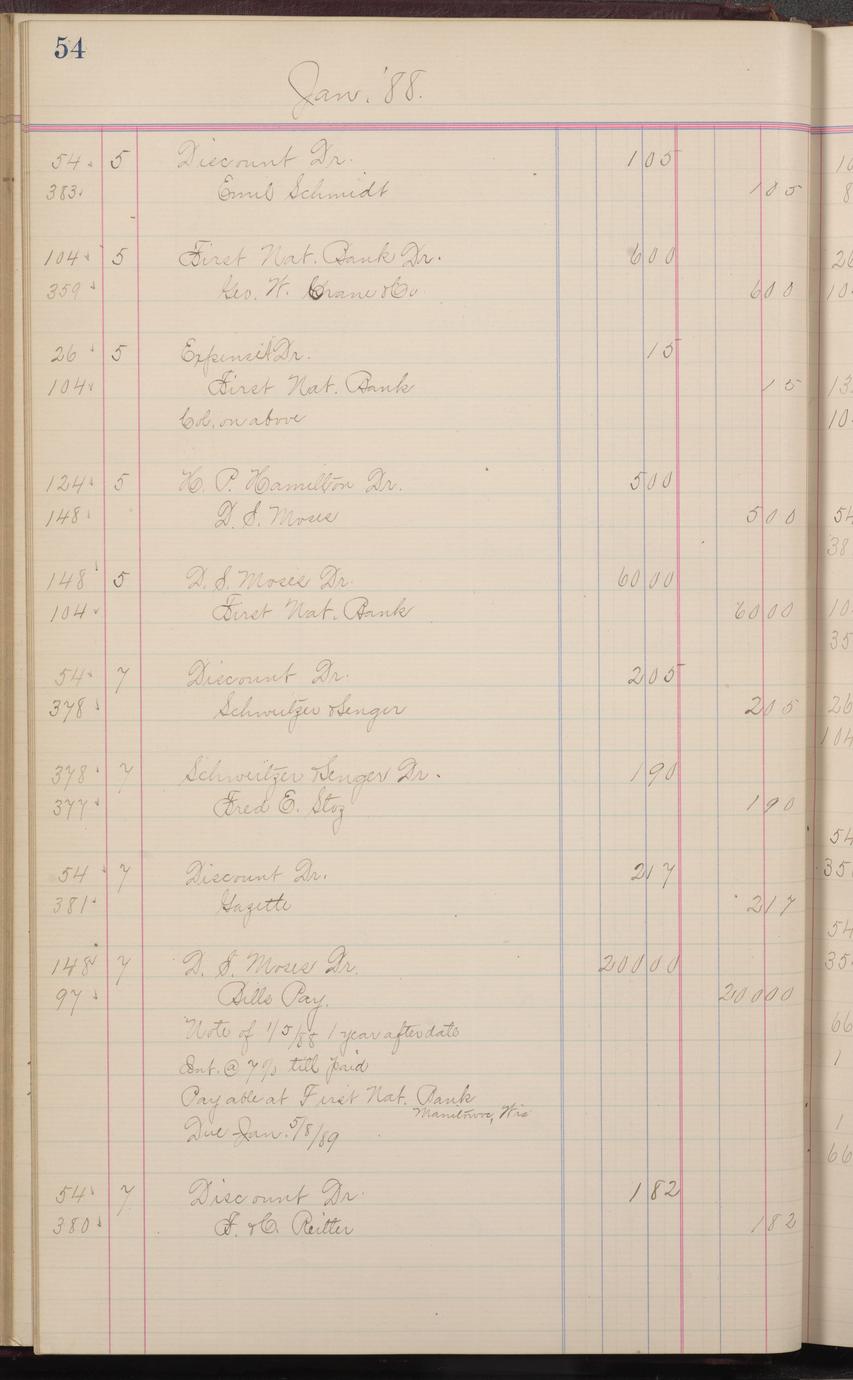 54
Jan. '88.
54 5 Discount Dr. 105
383 Emil Schmidt 105
104 5 First Nat. Bank Dr. 600
359 Geo. W. Crane & Co 600
26 5 Expense Dr. 15
104 First Nat. Bank 15
Col. on above
124 5 H. P. Hamilton Dr. 500
148 D. S. Moses 500
148 5 D. S. Moses Dr. 6000
104 First Nat. Bank 6000
54 7 Discount Dr. 205
378 Schweitzer & Senger 205
378 7 Schweitzer & Senger Dr. 190
377 Fred E. Stoz 190
54 7 Discount Dr. 217
381 Gazette 217
148 7 D. S. Moses Dr. 20000
97 Bills Pay. 20000
Note of 1/5/88 1 year after date
Int. @ 7% till paid
Payable at First Nat. Bank
Manitowoc, Wis
Due Jan. 5/8/89
54 7 Discount Dr. 182
380 F. & C. Reitter 182